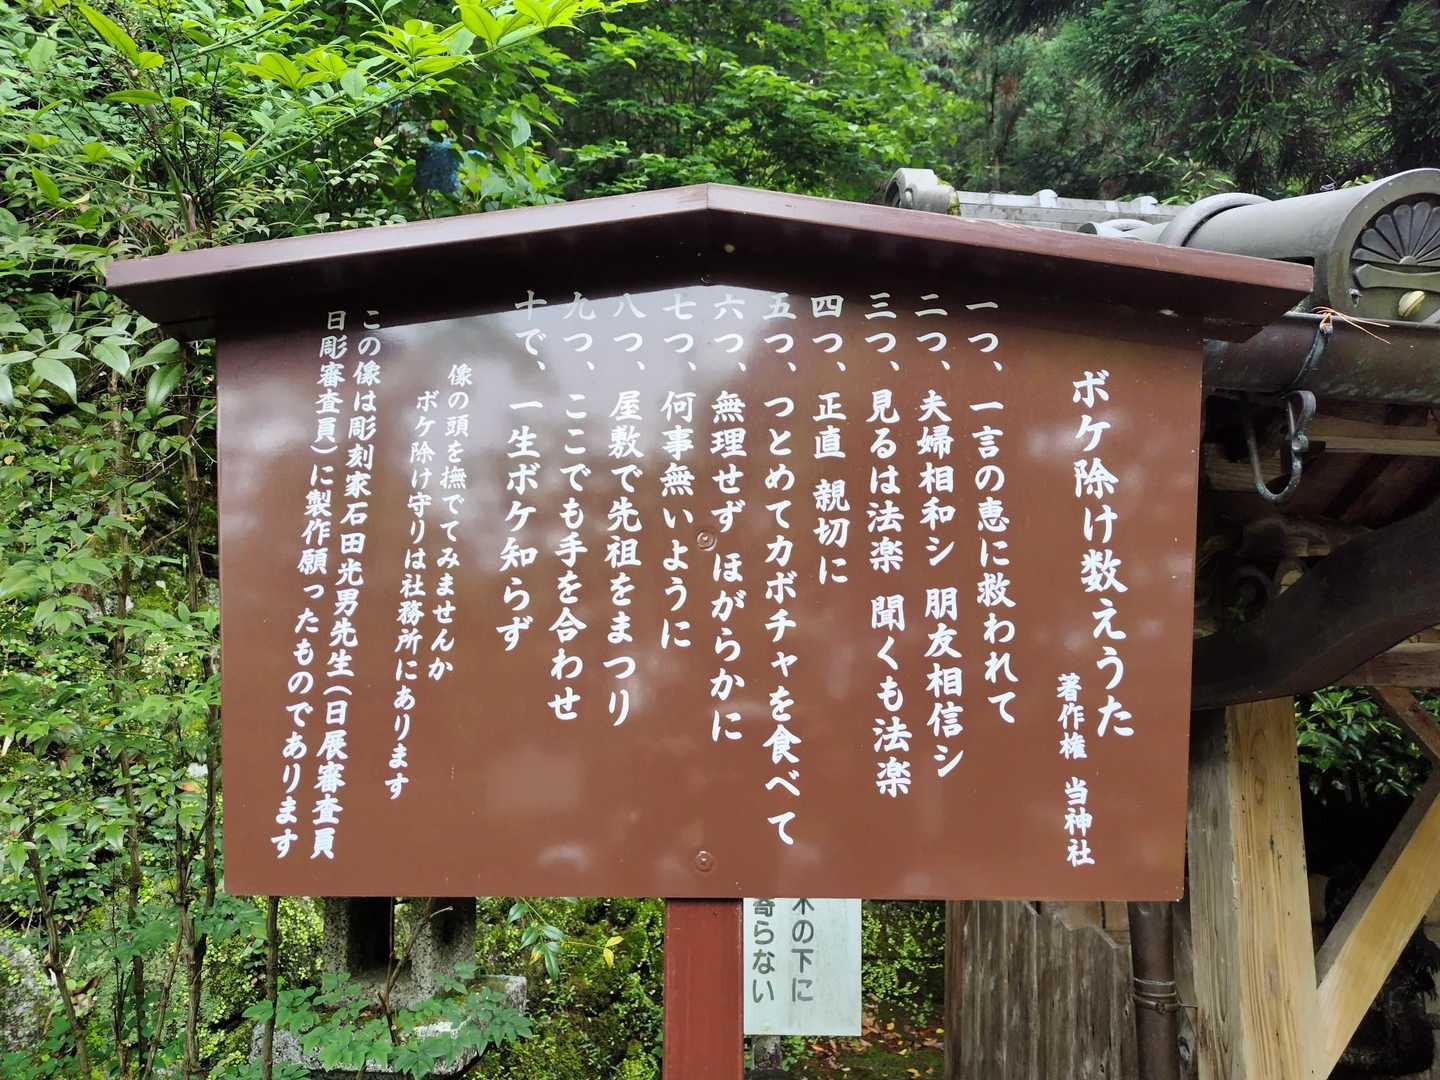 ボケ除け数えうた
著作権 当神社
一つ、一言の恵に救われて
二つ、夫婦相和シ 朋友相信シ
三つ、見るは法楽 聞くも法楽
四つ、正直 親切に
五つ、つとめてカボチャを食べて
六つ、無理せず ほがらかに
七つ、何事無いように
八つ、屋敷で先祖をまつり
九つ、ここでも手を合わせ
十で、一生ボケ知らず
像の頭を撫でてみませんか
ボケ除け守りは社務所にあります
この像は彫刻家石田光男先生(日展審査員
日彫審査員)に製作願ったものであります
木の下に
寄らない